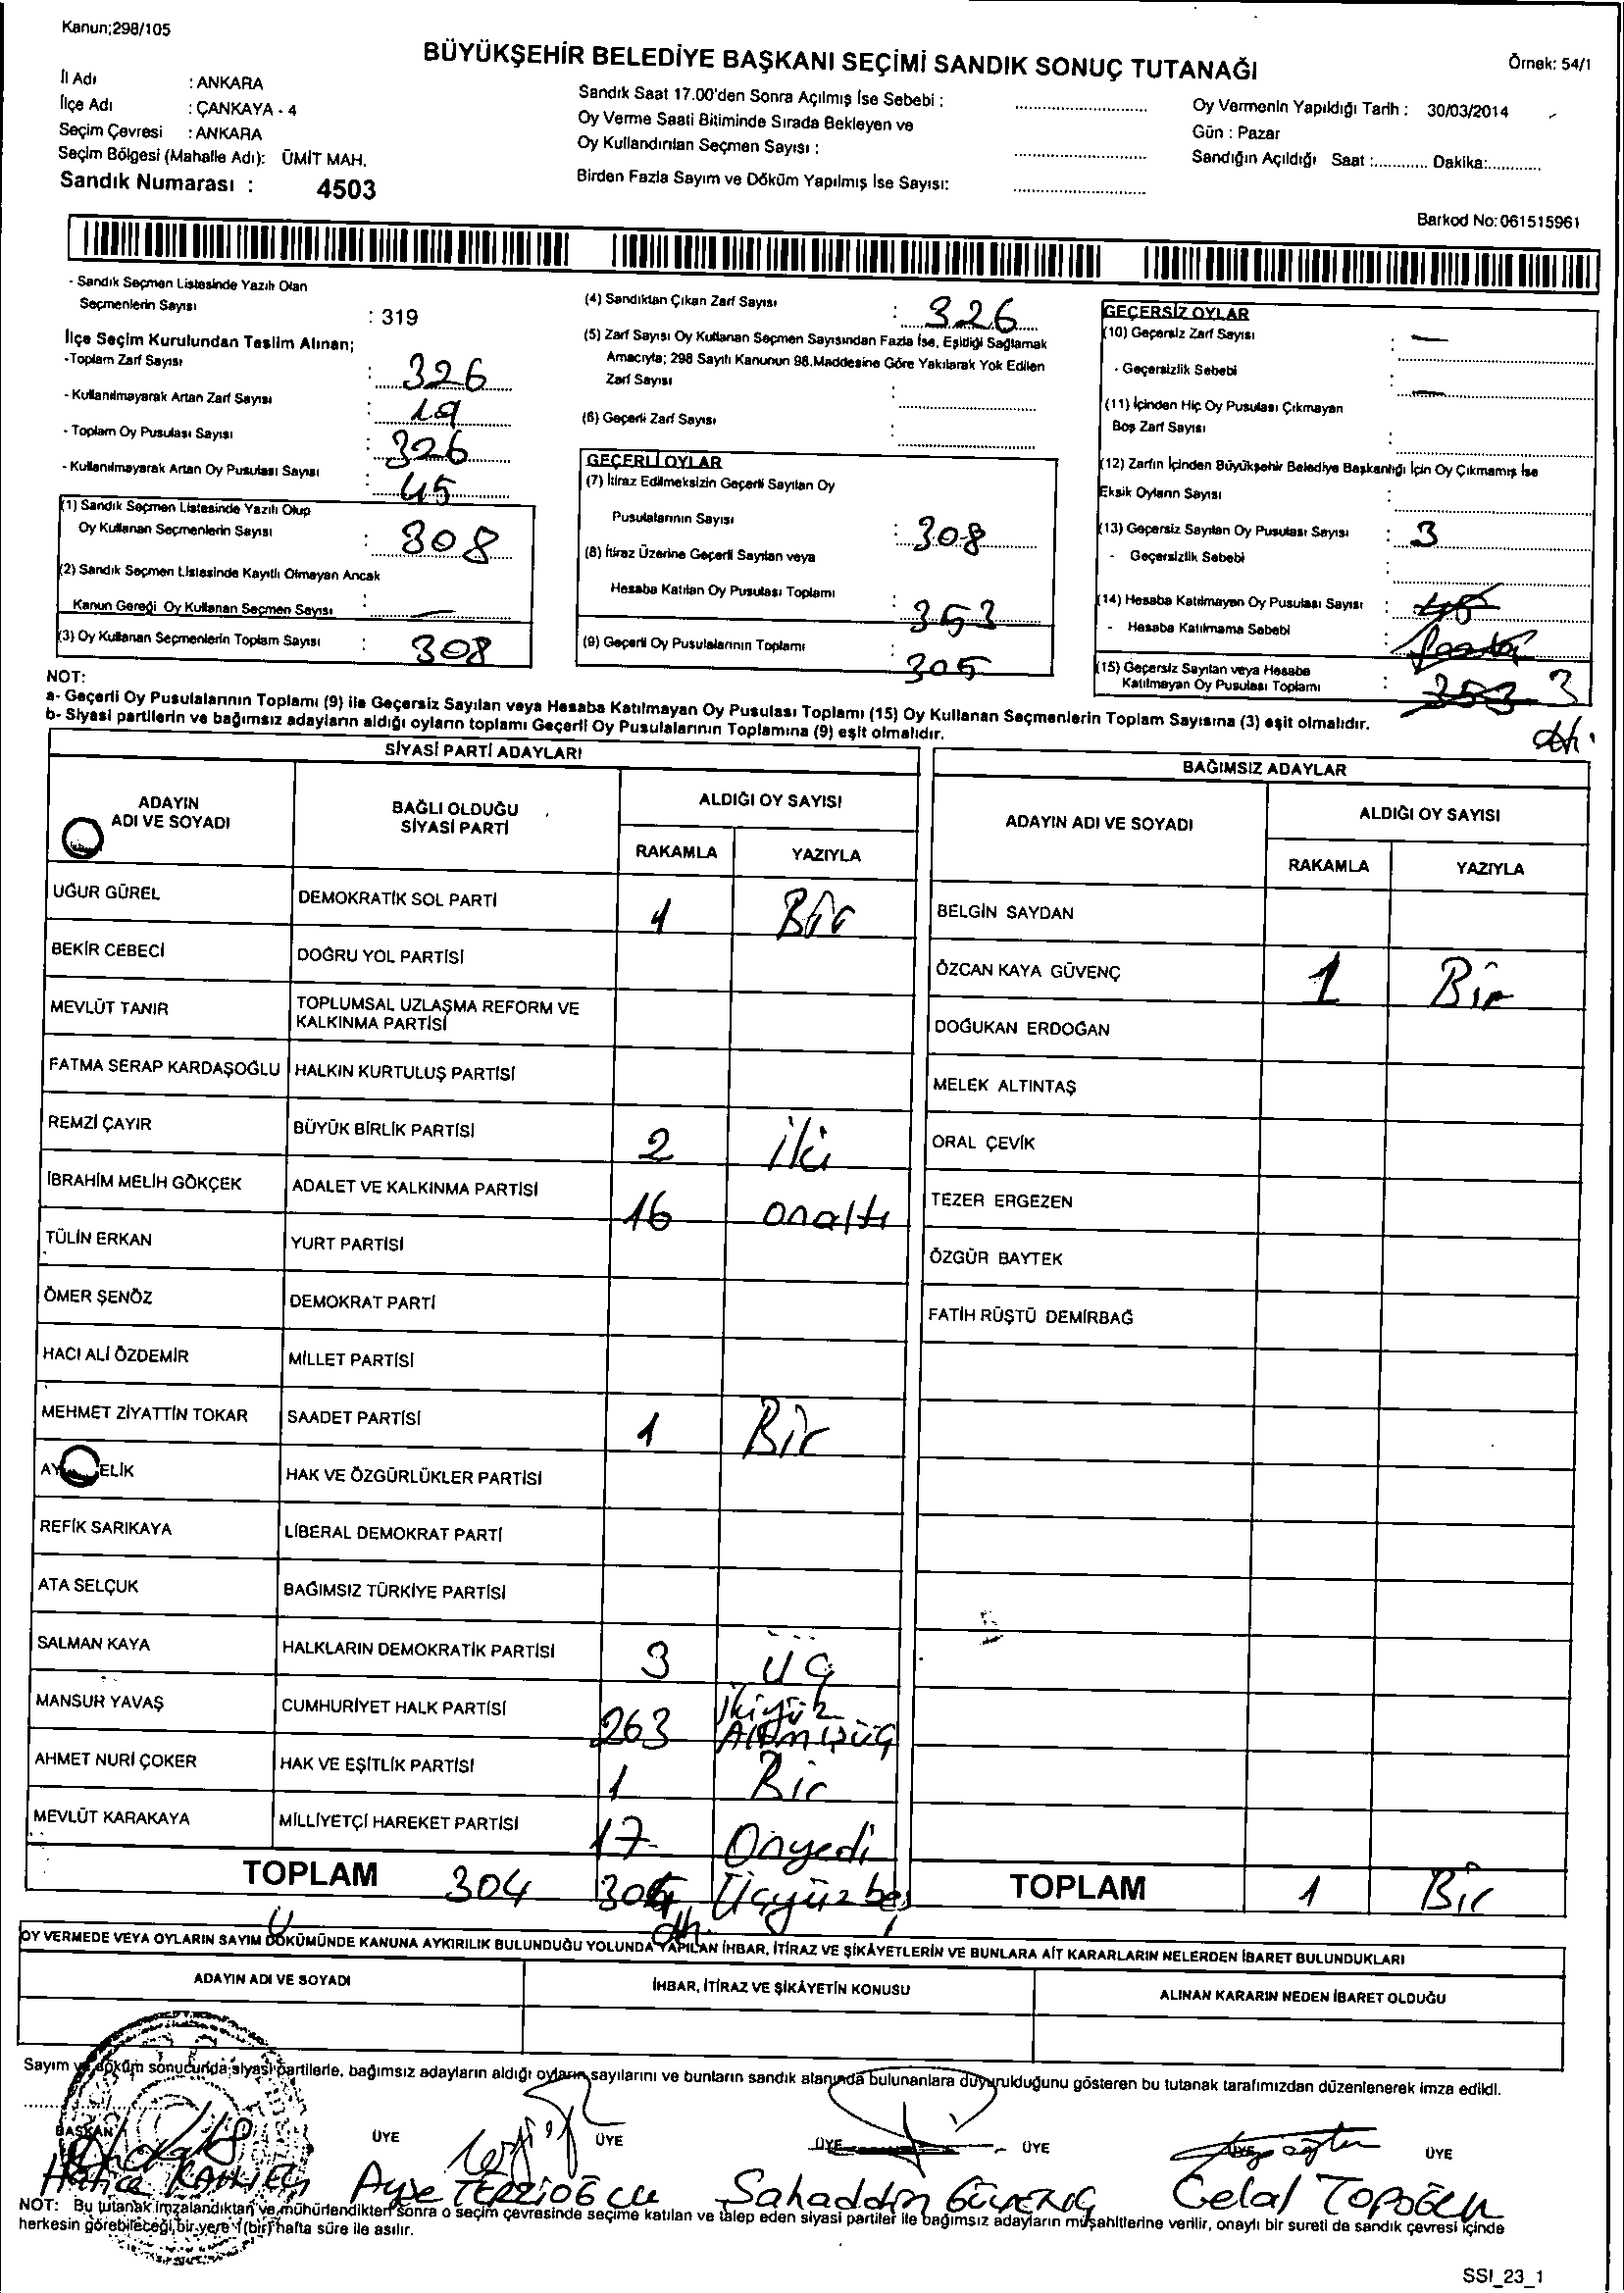 Kanun;298/105
BÜYÜKŞEHİR BELEDİYE BAŞKANI SEÇİMİ SANDIK SONUÇ TUTANAĞI
Örnek: 54/1
İl Adı : ANKARA
İlçe Adı : ÇANKAYA - 4
Seçim Çevresi : ANKARA
Seçim Bölgesi (Mahalle Adı): ÜMİT MAH.
Sandık Numarası : 4503
Sandık Saat 17.00'den Sonra Açılmış İse Sebebi :
Oy Verme Saati Bitiminde Sırada Bekleyen ve
Oy Kullandırılan Seçmen Sayısı :
Birden Fazla Sayım ve Döküm Yapılmış İse Sayısı:
Oy Vermenin Yapıldığı Tarih : 30/03/2014
Gün : Pazar
Sandığın Açıldığı Saat :............ Dakika:............
Barkod No:061515961
- Sandık Seçmen Listesinde Yazılı Olan
Seçmenlerin Sayısı : 319
İlçe Seçim Kurulundan Teslim Alınan;
-Toplam Zarf Sayısı : 326
- Kullanılmayarak Artan Zarf Sayısı : 19
- Toplam Oy Pusulası Sayısı : 326
- Kullanılmayarak Artan Oy Pusulası Sayısı : 45
(1) Sandık Seçmen Listesinde Yazılı Olup
Oy Kullanan Seçmenlerin Sayısı : 308
(2) Sandık Seçmen Listesinde Kayıtlı Olmayan Ancak
Kanun Gereği Oy Kullanan Seçmen Sayısı : —
(3) Oy Kullanan Seçmenlerin Toplam Sayısı : 308
(4) Sandıktan Çıkan Zarf Sayısı : 326
(5) Zarf Sayısı Oy Kullanan Seçmen Sayısından Fazla İse, Eşitliği Sağlamak
Amacıyla; 298 Sayılı Kanunun 98.Maddesine Göre Yakılarak Yok Edilen
Zarf Sayısı :
(6) Geçerli Zarf Sayısı :
GEÇERLİ OYLAR
(7) İtiraz Edilmeksizin Geçerli Sayılan Oy
Pusulalarının Sayısı : 308
(8) İtiraz Üzerine Geçerli Sayılan veya
Hesaba Katılan Oy Pusulası Toplamı : 353
(9) Geçerli Oy Pusulalarının Toplamı : 305
GEÇERSİZ OYLAR
(10) Geçersiz Zarf Sayısı : —
- Geçersizlik Sebebi : —
(11) İçinden Hiç Oy Pusulası Çıkmayan
Boş Zarf Sayısı :
(12) Zarfın İçinden Büyükşehir Belediye Başkanlığı İçin Oy Çıkmamış İse
Eksik Oyların Sayısı :
(13) Geçersiz Sayılan Oy Pusulası Sayısı : 3
- Geçersizlik Sebebi :
(14) Hesaba Katılmayan Oy Pusulası Sayısı : 45
- Hesaba Katılmama Sebebi :
(15) Geçersiz Sayılan veya Hesaba
Katılmayan Oy Pusulası Toplamı : 353 3
NOT:
a- Geçerli Oy Pusulalarının Toplamı (9) ile Geçersiz Sayılan veya Hesaba Katılmayan Oy Pusulası Toplamı (15) Oy Kullanan Seçmenlerin Toplam Sayısına (3) eşit olmalıdır.
b- Siyasi partilerin ve bağımsız adayların aldığı oyların toplamı Geçerli Oy Pusulalarının Toplamına (9) eşit olmalıdır.
SİYASİ PARTİ ADAYLARI
ADAYIN ADI VE SOYADI BAĞLI OLDUĞU SİYASİ PARTİ ALDIĞI OY SAYISI
RAKAMLA YAZIYLA
UĞUR GÜREL DEMOKRATİK SOL PARTİ 1 Bir
BEKİR CEBECİ DOĞRU YOL PARTİSİ
MEVLÜT TANIR TOPLUMSAL UZLAŞMA REFORM VE KALKINMA PARTİSİ
FATMA SERAP KARDAŞOĞLU HALKIN KURTULUŞ PARTİSİ
REMZİ ÇAYIR BÜYÜK BİRLİK PARTİSİ 2 iki
İBRAHİM MELİH GÖKÇEK ADALET VE KALKINMA PARTİSİ 16 onaltı
TÜLİN ERKAN YURT PARTİSİ
ÖMER ŞENÖZ DEMOKRAT PARTİ
HACI ALİ ÖZDEMİR MİLLET PARTİSİ
MEHMET ZİYATTİN TOKAR SAADET PARTİSİ 1 Bir
AY ELİK HAK VE ÖZGÜRLÜKLER PARTİSİ
REFİK SARIKAYA LİBERAL DEMOKRAT PARTİ
ATA SELÇUK BAĞIMSIZ TÜRKİYE PARTİSİ
SALMAN KAYA HALKLARIN DEMOKRATİK PARTİSİ 3 üç
MANSUR YAVAŞ CUMHURİYET HALK PARTİSİ 263 ikiyüz Altmışüç
AHMET NURİ ÇOKER HAK VE EŞİTLİK PARTİSİ 1 Bir
MEVLÜT KARAKAYA MİLLİYETÇİ HAREKET PARTİSİ 17 Onyedi
TOPLAM 304 Üçyüzbeş
BAĞIMSIZ ADAYLAR
ADAYIN ADI VE SOYADI ALDIĞI OY SAYISI
RAKAMLA YAZIYLA
BELGİN SAYDAN
ÖZCAN KAYA GÜVENÇ 1 Bir
DOĞUKAN ERDOĞAN
MELEK ALTINTAŞ
ORAL ÇEVİK
TEZER ERGEZEN
ÖZGÜR BAYTEK
FATİH RÜŞTÜ DEMİRBAĞ
TOPLAM 1 Bir
OY VERMEDE VEYA OYLARIN SAYIM DÖKÜMÜNDE KANUNA AYKIRILIK BULUNDUĞU YOLUNDA YAPILAN İHBAR, İTİRAZ VE ŞİKÂYETLERİN VE BUNLARA AİT KARARLARIN NELERDEN İBARET BULUNDUKLARI
ADAYIN ADI VE SOYADI İHBAR, İTİRAZ VE ŞİKÂYETİN KONUSU ALINAN KARARIN NEDEN İBARET OLDUĞU
Sayım ve döküm sonucunda siyasi partilerle, bağımsız adayların aldığı oyların sayılarını ve bunların sandık alanında bulunanlara duyurulduğunu gösteren bu tutanak tarafımızdan düzenlenerek imza edildi.
BAŞKAN ÜYE ÜYE ÜYE ÜYE ÜYE ÜYE
Hatice Ayşe TERZİOĞLU Sahaddin Celal TOPOĞLU
NOT: Bu tutanak imzalandıktan ve mühürlendikten sonra o seçim çevresinde seçime katılan ve talep eden siyasi partiler ile bağımsız adayların müşahitlerine verilir, onaylı bir sureti de sandık çevresi içinde
herkesin görebileceği bir yere 1(bir) hafta süre ile asılır.
SSI_23_1